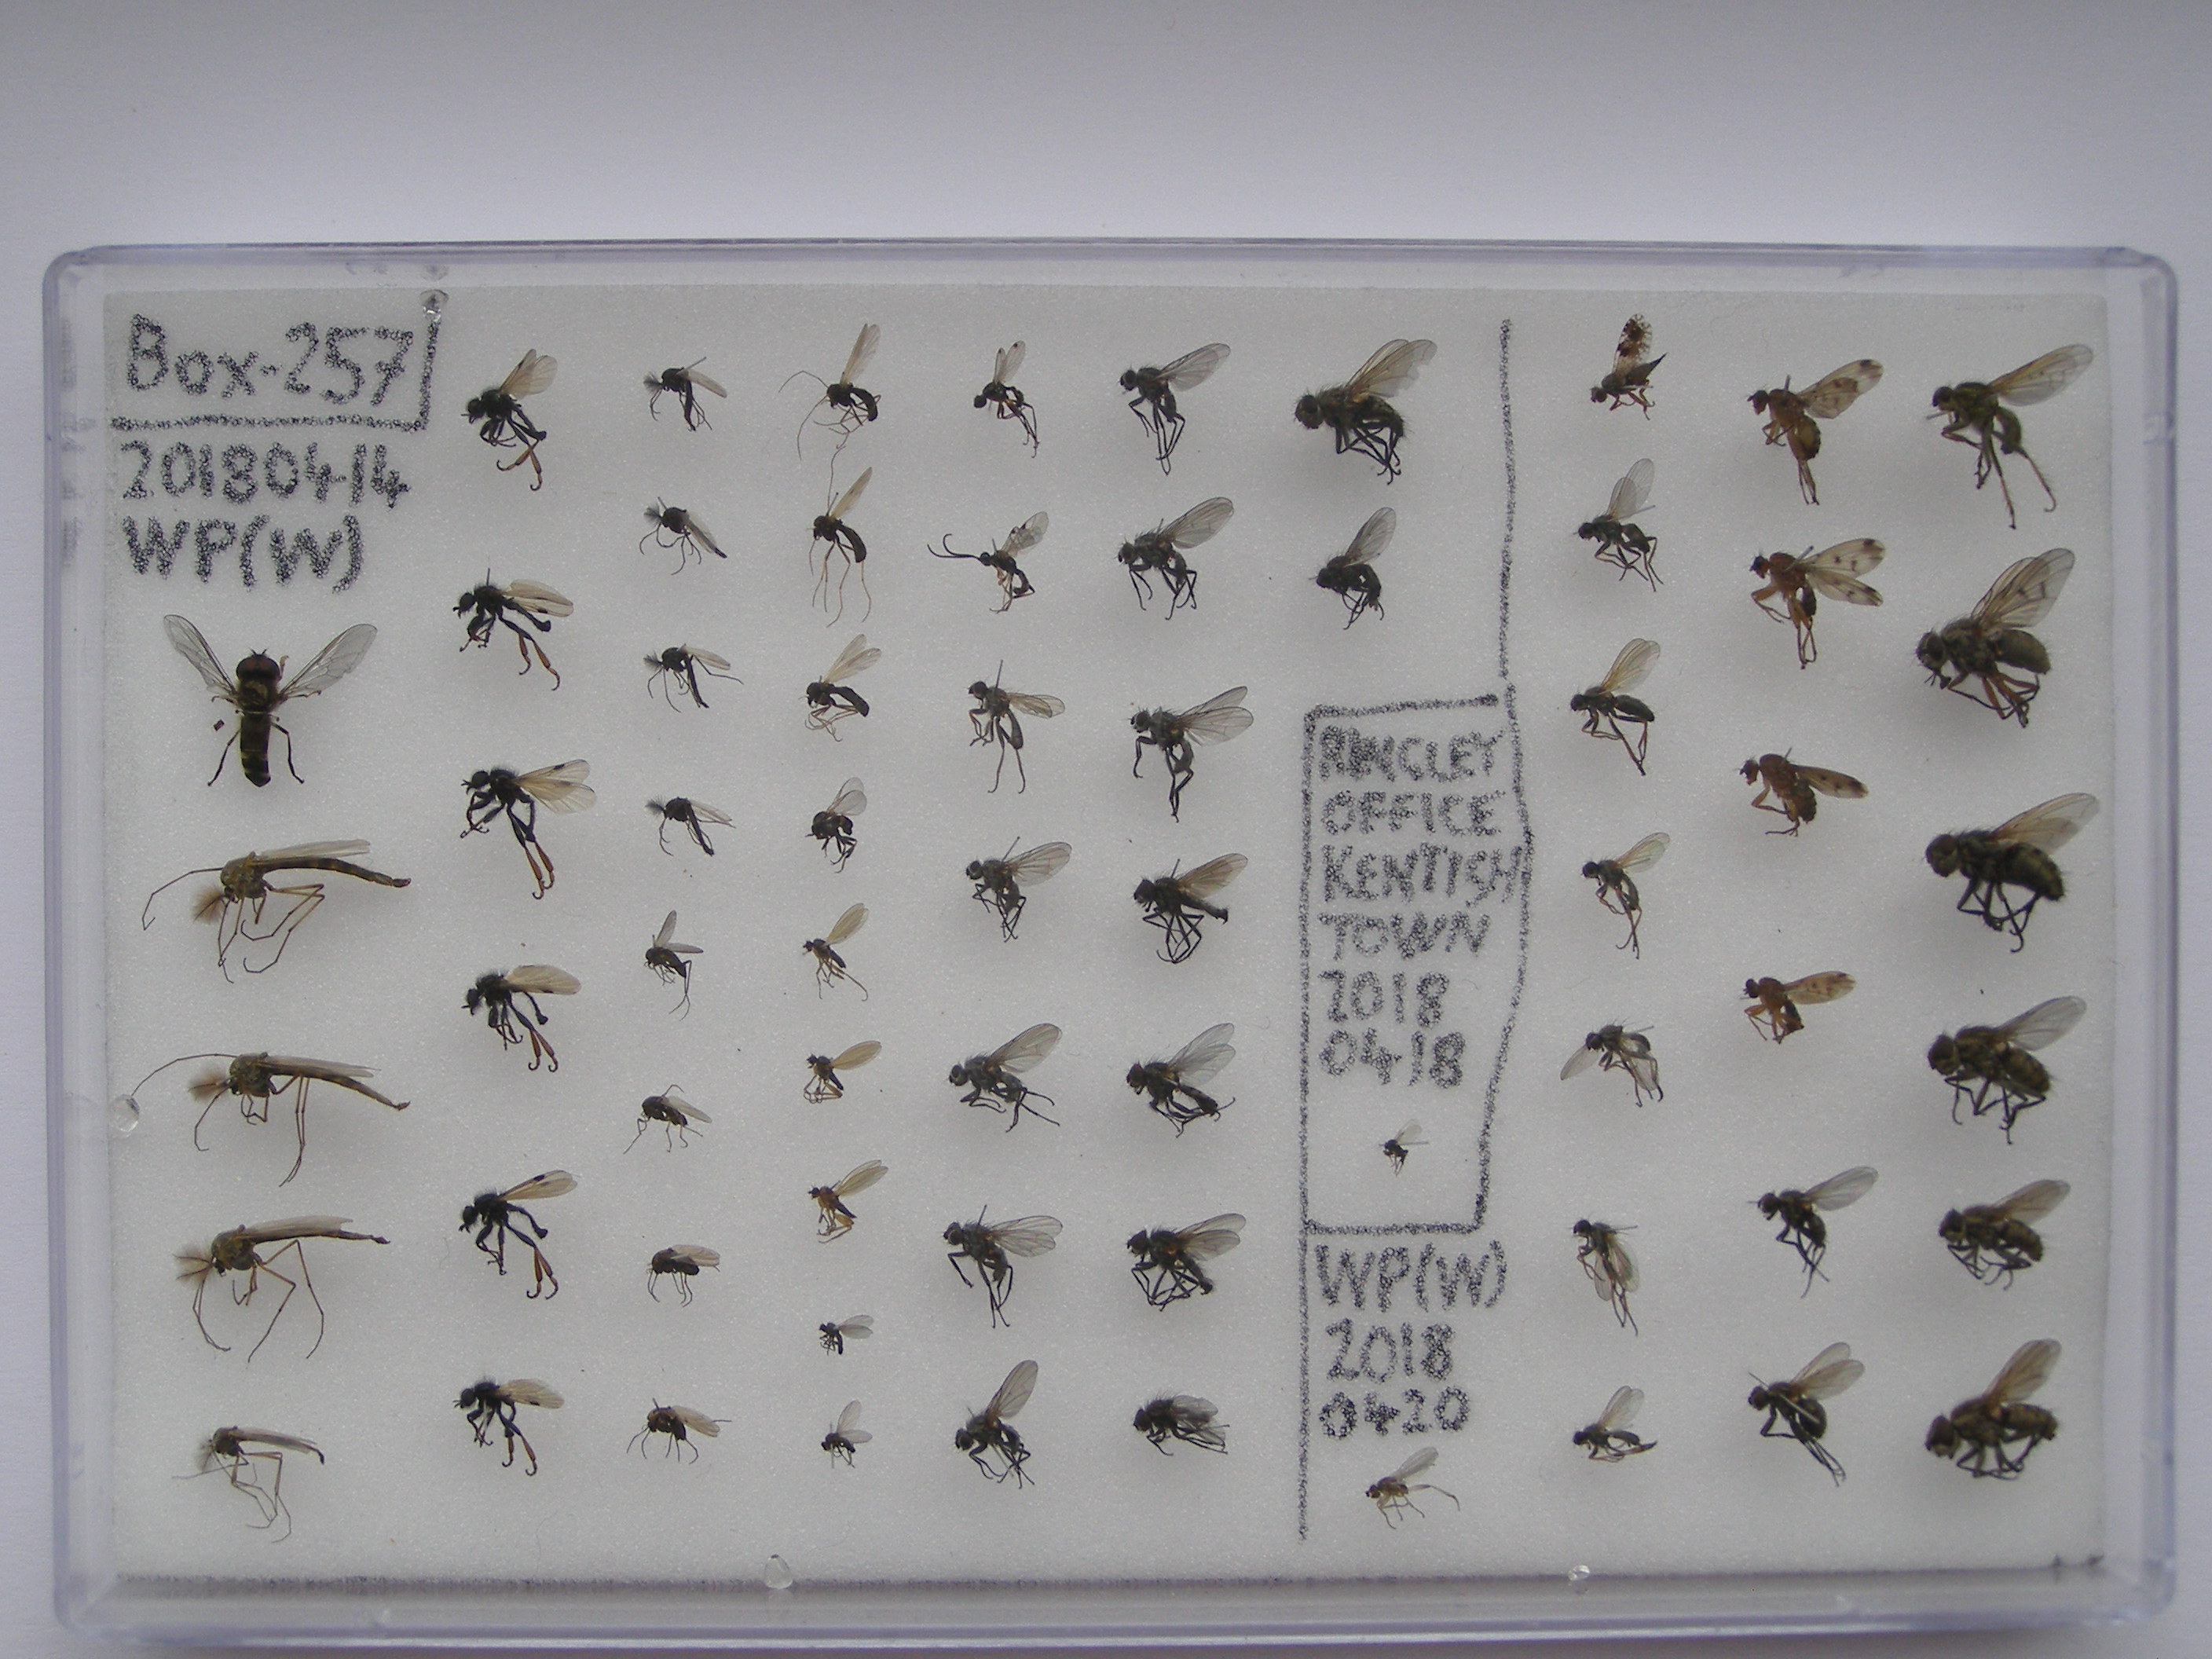 Box-257
20180414
WP(W)
OFFICE
KENTISH
TOWN
2018
0418
WP(W)
2018
0420